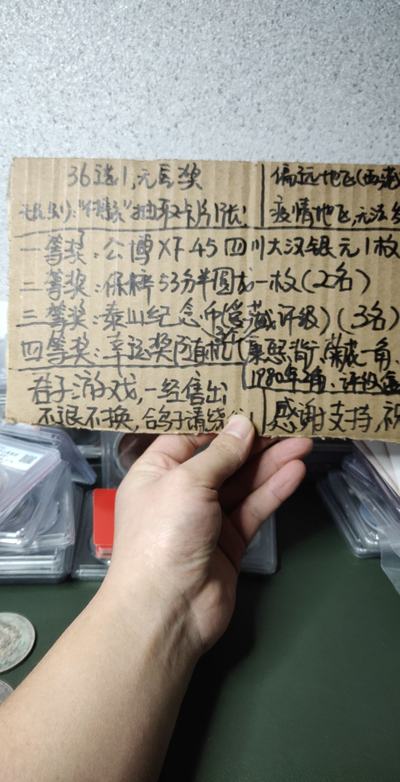 36选1,无空奖
偏远地区(西藏
抽取卡片1张
疫情地区,无法
一等奖:公博XF45四川大汉银元1枚
二等奖:保粹53分半圆龙一枚(2名)
三等奖:泰山纪念币(宝藏评级)(3名)
四等奖:幸运奖
康熙背
一角
君子游戏,一经售出
1980年
不退不换,鸽子请绕
感谢支持,祝